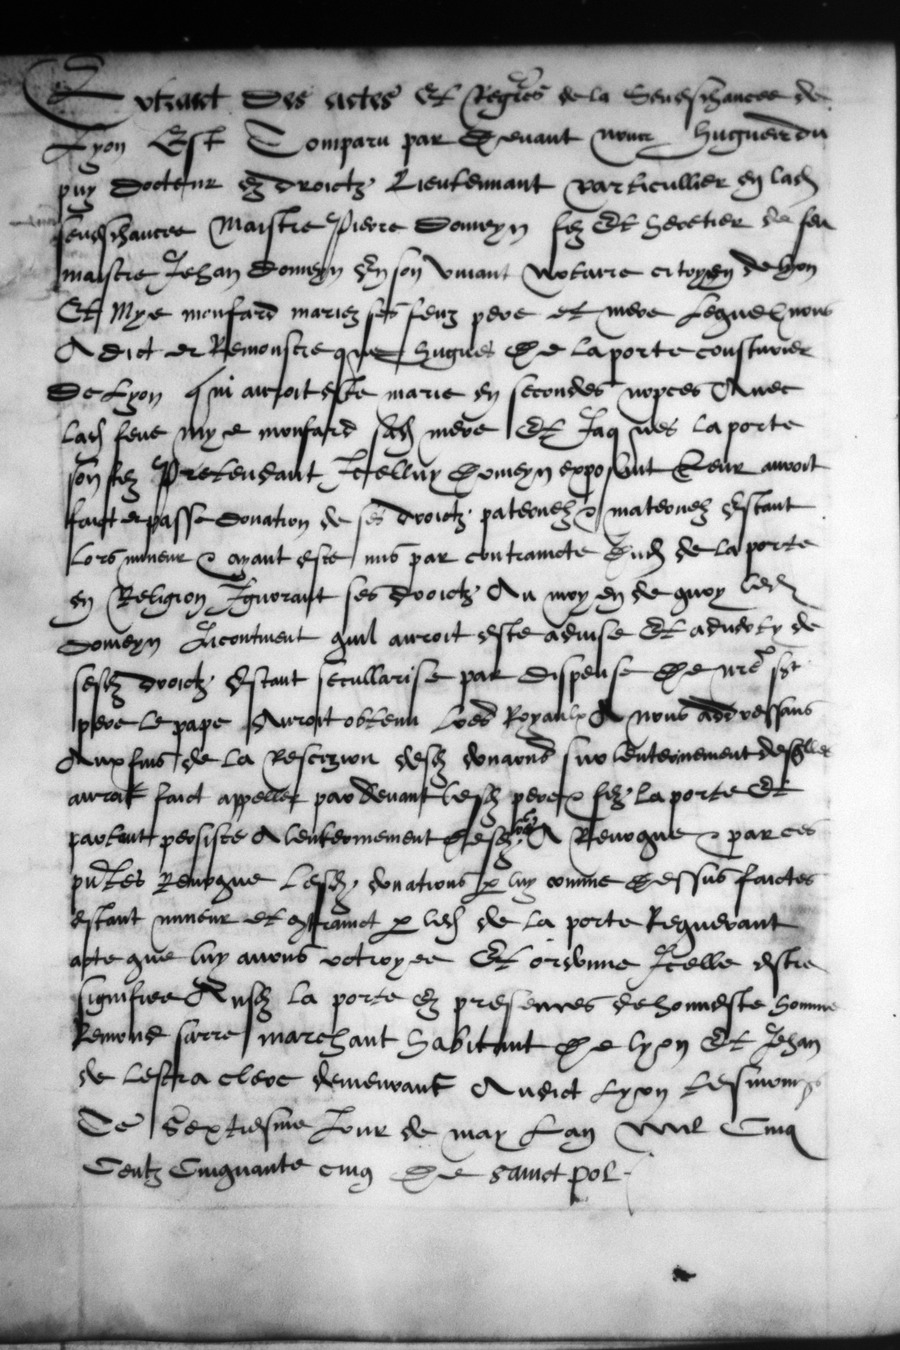 Extraict des actes Et Regres de la Seneschaucee de
Lyon Est Comparu par Devant nous Hugues du
puy docteur ez droictz Lieutennant particullier en lad
seneschaucee Maistre Pierre Domeyn filz Et heretier de feu
maistre Jehan domeyn En son vivant notaire citoyen de lyon
Et Mye monfard mariez ses feuz pere et mere Lequel nous
A dict et Remonstre que Hugues De la porte cousturier
De Lyon qui auroit este marie en secondes nopces Avec
lad feue mye monfard sad mere Et Jaques la porte
son filz Pretendant Icelluy Domeyn exposant Leur auroit
faict et passe donation de ses droictz paternelz & maternelz Estant
lors mineur & ayant este mis par contraincte Dud de la porte
en Religion Ignorant ses droictz Au moyen de quoy led
domeyn Incontinent quil auroit este advise Et adverty de
sesd droictz Estant secullarise par dispense De nre sst
pere le pape Auroit obtenu Lres Royaulx A nous addressans
Aux fins de la Rescizion desd donaons sur lenterinement desqlles
auroit faict appeller par devant lesd pere & filz la porte Et
partant persiste A lenterinement desd lres A Revoque & par ces
pntes Revoque Lesd donations p luy comme dessus faictes
estant mineur et contrainct p led de la porte Requerant
acte que luy avons octroyee Et ordonne Icelle estre
signiffiee Ausd la porte Ez presences de honneste homme
Remond sarre marchant habitant De lyon Et Jehan
de Lestra clerc demeurant Audict Lyon tesmoings
Ce Sextiesme Jour de may Lan Mil Cinq
Centz Cinquante cinq De sainct pol